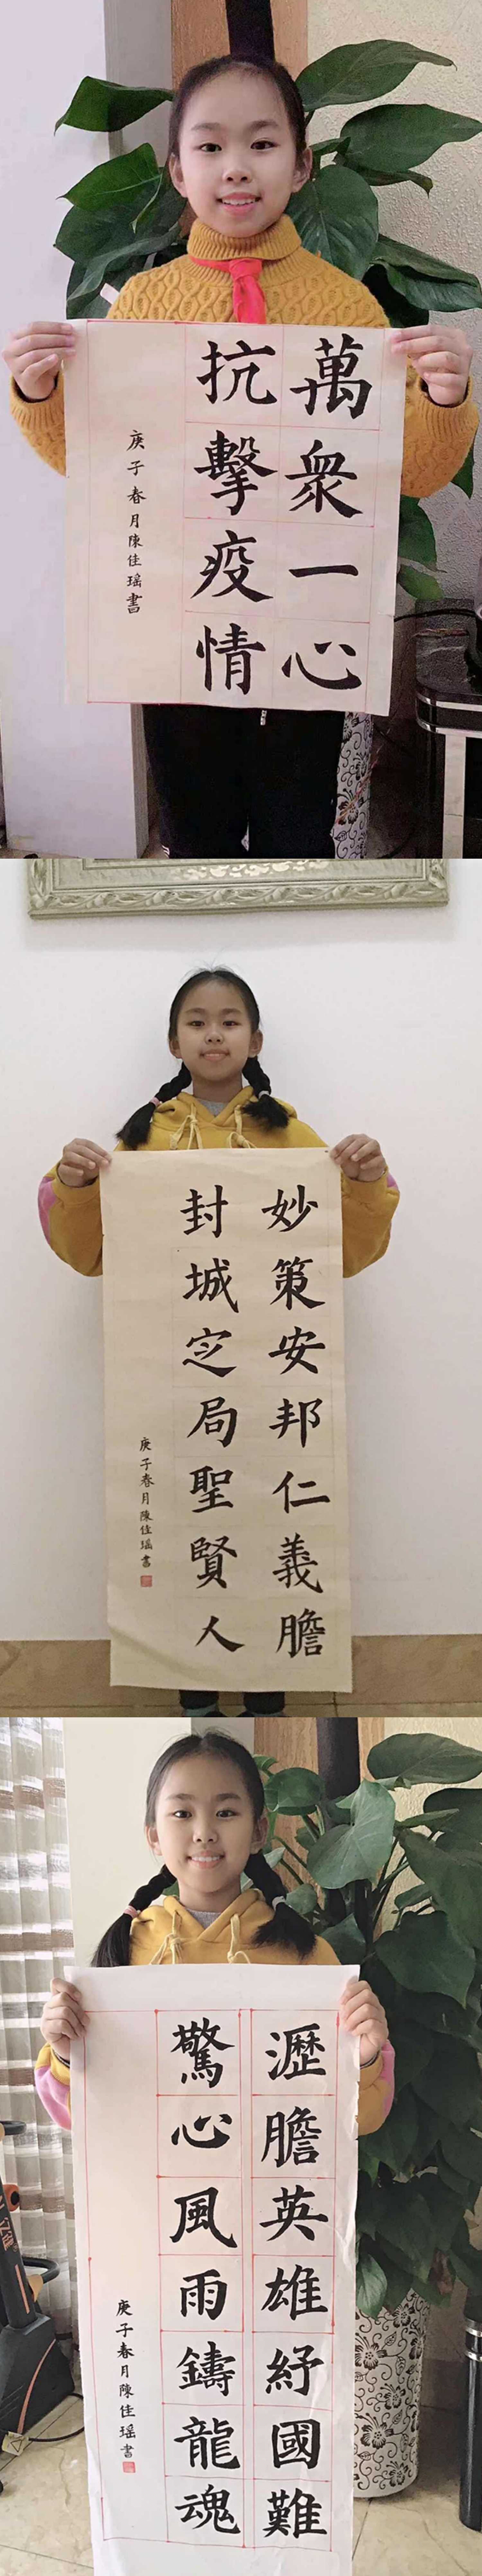 萬衆一心
抗擊疫情
庚子春月陳佳瑶書
妙策安邦仁義膽
封城定局聖賢人
庚子春月陳佳瑶書
瀝膽英雄紓國難
驚心風雨鑄龍魂
庚子春月陳佳瑶書